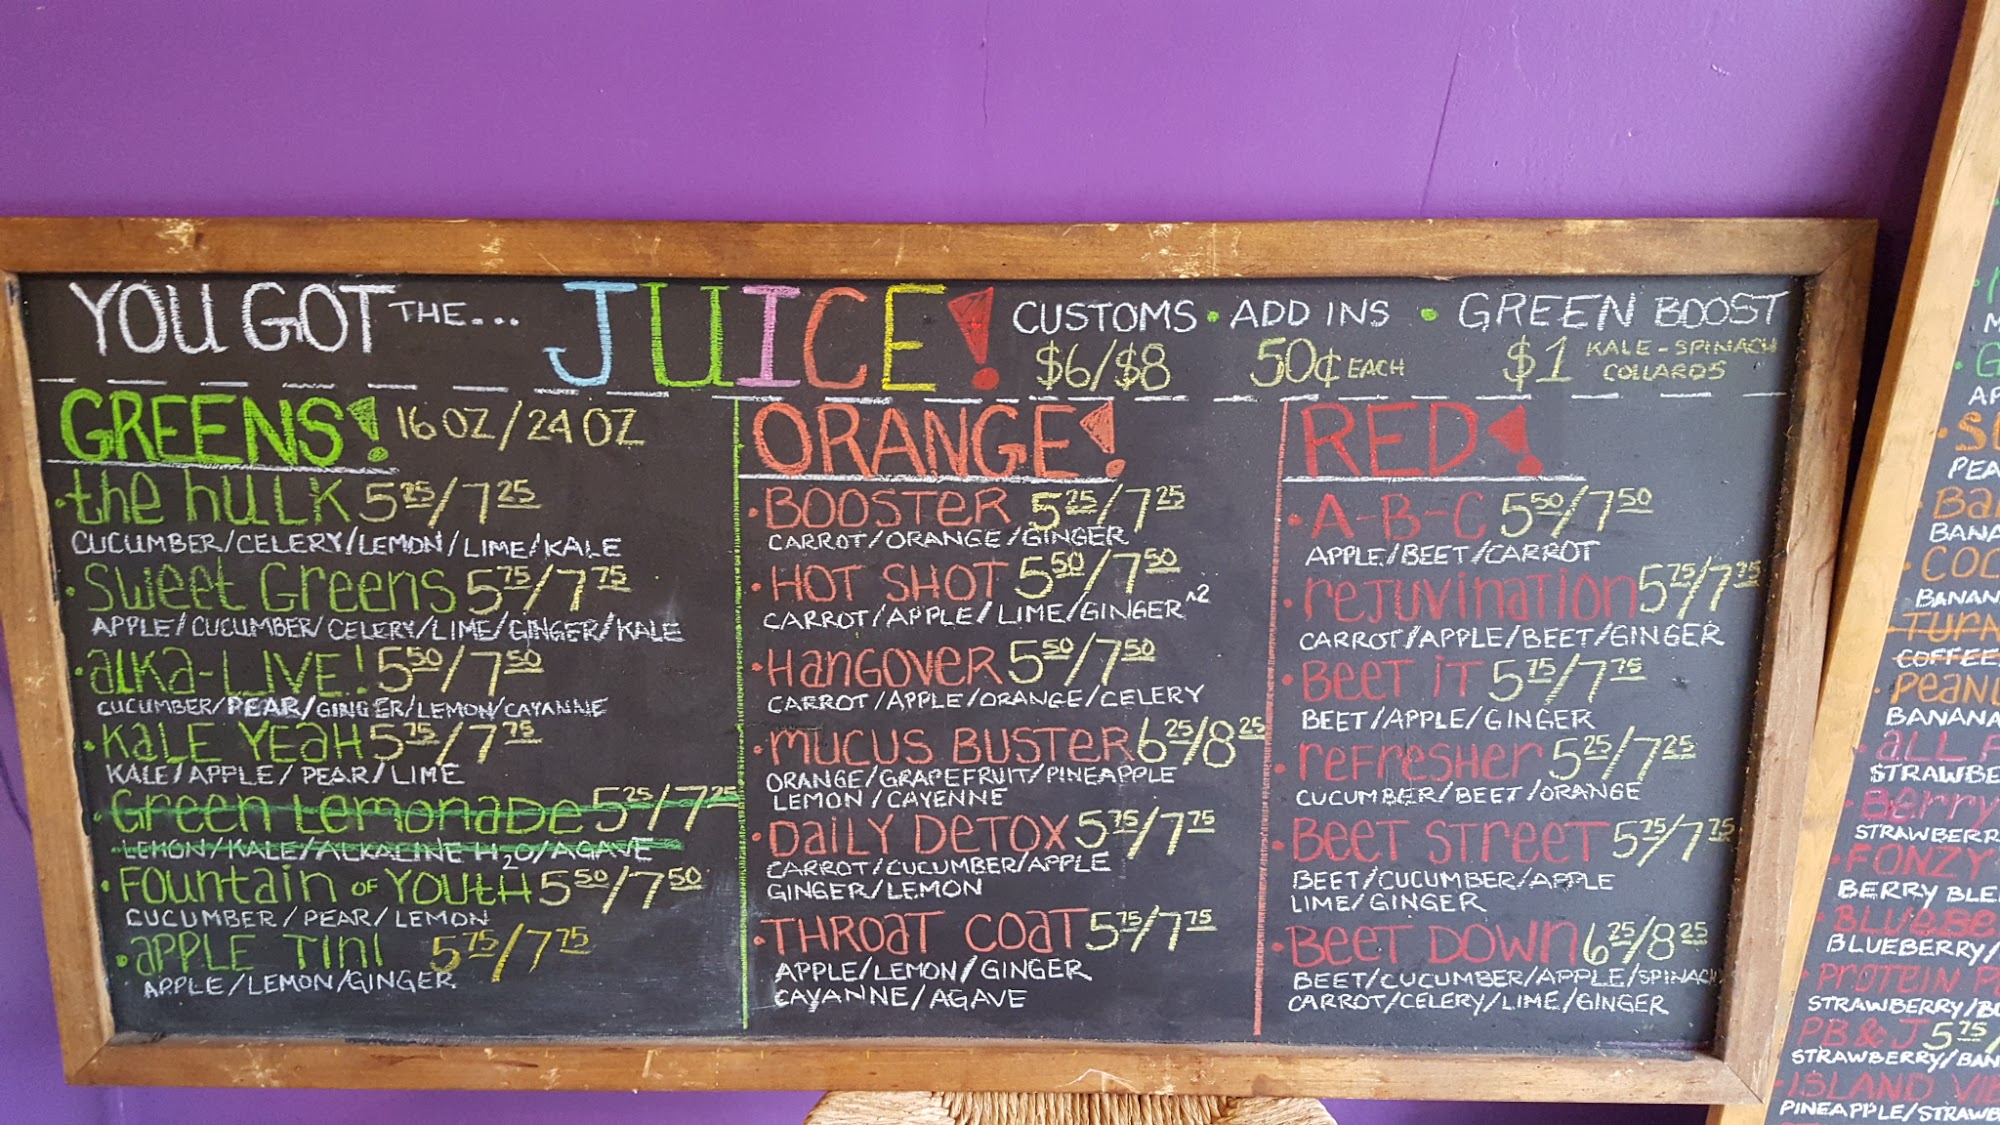 YOU GOT THE... JUICE!
CUSTOMS • ADD INS • GREEN BOOST
$6/$8 50¢ EACH $1 KALE-SPINACH
COLLARDS
GREENS! 16 OZ/24 OZ
• the HULK 5 25/7 25
CUCUMBER/CELERY/LEMON/LIME/KALE
• Sweet Greens 5 75/7 75
APPLE/CUCUMBER/CELERY/LIME/GINGER/KALE
• alka-LIVE! 5 50/7 50
CUCUMBER/PEAR/GINGER/LEMON/CAYANNE
• KaLE YEaH 5 75/7 75
KALE/APPLE/PEAR/LIME
• Green Lemonade 5 25/7 25
LEMON/KALE/ALKALINE H2O/AGAVE
• Fountain OF YOUtH 5 50/7 50
CUCUMBER/PEAR/LEMON
• aPPLE TINI 5 75/7 75
APPLE/LEMON/GINGER
ORANGE!
• BOOSTER 5 25/7 25
CARROT/ORANGE/GINGER
• HOT SHOT 5 50/7 50
CARROT/APPLE/LIME/GINGER^2
• HanGOVER 5 50/7 50
CARROT/APPLE/ORANGE/CELERY
• MUCUS BUSTER 6 25/8 25
ORANGE/GRAPEFRUIT/PINEAPPLE
LEMON/CAYENNE
• DaiLY DeTOX 5 75/7 75
CARROT/CUCUMBER/APPLE
GINGER/LEMON
• THROaT COaT 5 75/7 75
APPLE/LEMON/GINGER
CAYANNE/AGAVE
RED!
• A-B-C 5 50/7 50
APPLE/BEET/CARROT
• reJUVINATION 5 75/7 75
CARROT/APPLE/BEET/GINGER
• BEET iT 5 75/7 75
BEET/APPLE/GINGER
• reFresHer 5 25/7 25
CUCUMBER/BEET/ORANGE
• BeeT STreeT 5 75/7 75
BEET/CUCUMBER/APPLE
LIME/GINGER
• BeeT DOWN 6 25/8 25
BEET/CUCUMBER/APPLE/SPINACH
CARROT/CELERY/LIME/GINGER
PEA
BANA
COC
BANAN
TURN
COFFEE
PEANU
BANANA
aLL F
STRAWBE
Berry
STRAWBERR
FONZY
BERRY BLE
BLUEBE
BLUEBERRY/
PROTEIN P
STRAWBERRY/B
PB & J 5 75/
STRAWBERRY/BAN
ISLAND VIB
PINEAPPLE/STRAWB